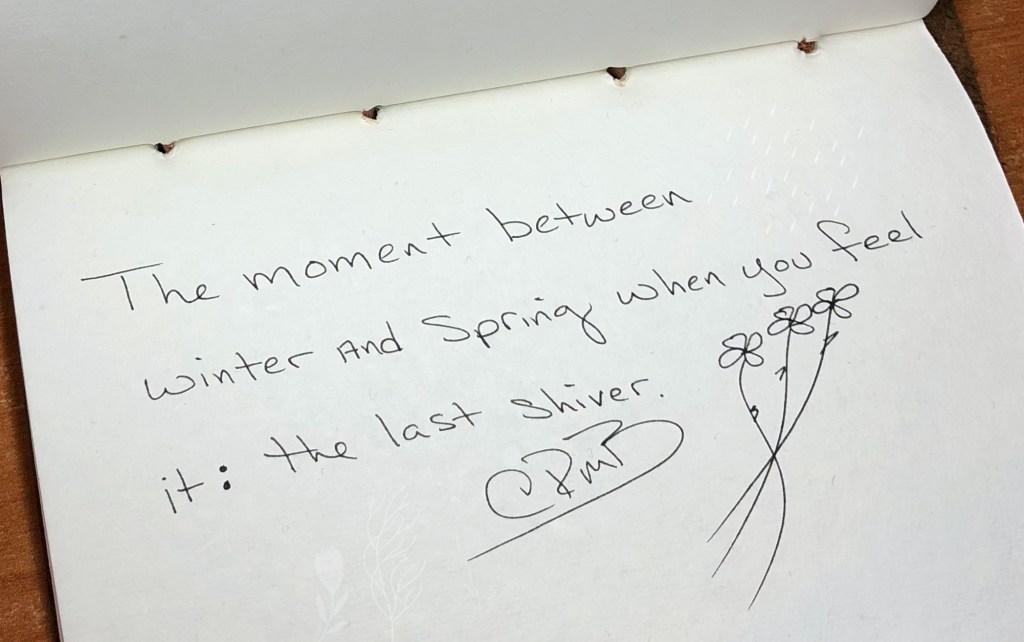 The moment between
winter And Spring when you feel
it: the last shiver.